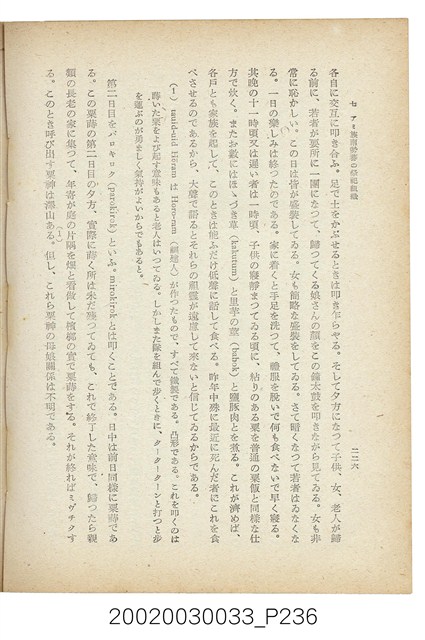 七 アミ族南勢蕃の祭祀組織
二二六
各自に交互に叩き合ふ。足で土をかぶせるときは叩き乍らやる。そして夕方になつて子供、女、老人が歸
る前に、若者が要所に一團になつて、歸つてくる娘さんの顔をこの鐘太鼓を叩きながら見てゐる。女も非
常に恥かしい。この日は皆が盛裝してゐる。女も簡略な盛裝をしてゐる。さて暗くなつて若者はゐなくな
る。一日の樂しみは終つたのである。家に着くと手足を洗つて、禮服を脱いで何も食べないで早く寢る。
其晩の十一時頃又は遲い者は一時頃、子供の寢靜まつてゐる頃に、粘りのある粟を普通の粟飯と同樣な仕
方で炊く。またお數にはほゝづき草 (kakutum) と里芋の莖 (babok) と鹽豚肉とを煮る。これが濟めば、
各戸とも家族を起して、このときは他ふだけ低聲に話して食べる。昨年中殊に最近に死んだ者にこれを食
べさせるのであるから、大聲で語るとそれらの祖靈が遠慮して來ないと信じてゐるからである。
(1) は Horo-ram (祖達人) が作つたもので、すべて鐵製である。凸形である。これを叩くのは
蒔いた粟をよび起す意味もあると老人はいつてゐる。しかしまた隊を組んで歩くときに、クーターターンと打つと歩
を運ぶのが勇ましく氣持がよいからでもあると。
第二日目をパロキロク (parokirok) といふ。mirokirok とは叩くことである。日中は前日同樣に粟蒔であ
る。この粟蒔の第二日目の夕方、實際に蒔く所は未だ殘つてゐても、これで終了した意味で、歸つたら親
類の長老の家に集つて、年寄が庭の片隅を畑と看做して檳榔の實で粟蒔をする。それが終ればミヴチクす
る。このとき呼び出す粟神は澤山ある。但し、これら粟神の母娘關係は不明である。
(1)
20020030033_P236